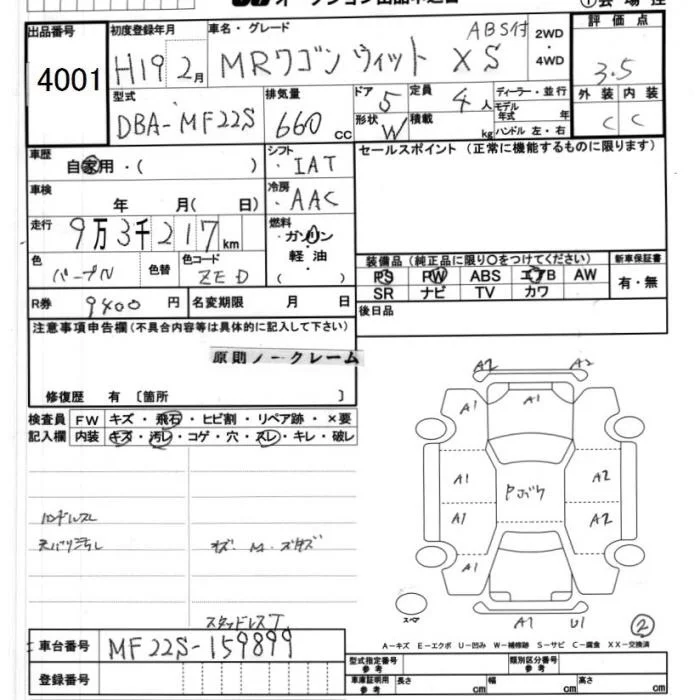 出品番号
4001
初度登録年月
H19 2月
車名・グレード
ABS付
MRワゴン ウィット XS
2WD
・
4WD
評価点
3.5
外装 内装
C C
型式
DBA-MF22S
排気量
660 cc
ドア
5
形状
W
定員
4人
積載
kg
ディーラー・並行
モデル
年式 年
ハンドル 左・右
車歴
自家用・( )
シフト
IAT
セールスポイント(正常に機能するものに限ります)
車検
年 月( 日)
冷房
AAC
走行
9万3千217km
燃料
ガソリン
軽油
( )
色
パープル
色替
色コード
ZED
装備品(純正品に限り○をつけてください)
PS PW ABS エアB AW
SR ナビ TV カワ
新車保証書
有・無
R券 9400円
名変期限 月 日
後日品
注意事項申告欄(不具合内容等は具体的に記入して下さい)
原則ノークレーム
修復歴 有〔箇所 〕
検査員
記入欄
FW キズ・飛石・ヒビ割・リペア跡・×要
内装 キズ・汚レ・コゲ・穴・スレ・キレ・破レ
ハンドルスレ
天バリ汚れ
スタッドレスT
A2 A2
A1 A1 A1
A1 A2
A1 A2
A1
スペア
A1 U1
2
A-キズ E-エクボ U-凹み W-補修跡 S-サビ C-腐食 XX-交換済
車台番号
MF22S-159899
登録番号
型式指定番号
参考
類別区分番号
参考
車庫証明用
参考
長さ cm 幅 cm 高さ cm